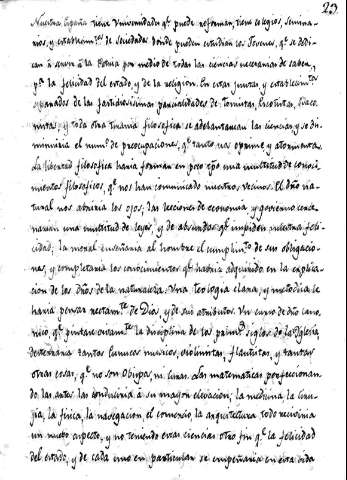 23
Nuestra España tiene Universidades qe puede reformar, tiene colegios, Semina-
rios, y establecim.tos de Sociedades donde pueden estudiar los Jovenes, qe se dedi-
can à servir à la Patria por medio de todas las ciencias necesarias de saber,
pª la felicidad del estado, y de la religion. En estas juntas, y establecim.tos
separados de las fastidiosisimas parcialidades de Tomistas, Escotistas, Suare
nistas y toda otra tirania filosofica se adelantarian las ciencias, y se dis-
minuiria el num.o de preocupaciones, qe tanto nos oprime y atormenta.
La libertad filosofica haria formar en poco tpo una multitud de conoci-
mientos filosoficos, qe nos han comunicado nuestros vecinos. El dro na-
tural nos abriria los ojos: las lecciones de economia y govierno conde-
narian una multitud de leyes, y de absurdos qe impiden nuestra feli-
cidad; la moral enseñaria al hombre el cumplim.to de sus obligacio-
nes, y completaria los conocimientos qe habria adquirido en la explica-
cion de los dros de la naturaleza. Una teologia clara, y metodica le
haria pensar rectam.te de Dios, y de sus atributos. Un curso de dro cano-
nico, qe pintase vivam.te la disciplina de los prim.os siglos de la Iglesia
desterraria tantos musicos, violinistas, flautistas, y tantas
otras cosas, qe no son Obispos, ni curas. Las matematicas perfeccionan
do las artes las conduciria à su mayor elevacion; la medicina, la ciru-
jia, la fisica, la navegacion, el comercio, la arquitectura todo reciviria
un nuevo aspecto, y no teniendo estas ciencias otro fin qe la felicidad
del estado, y de cada uno en particular se empeñaria en esta